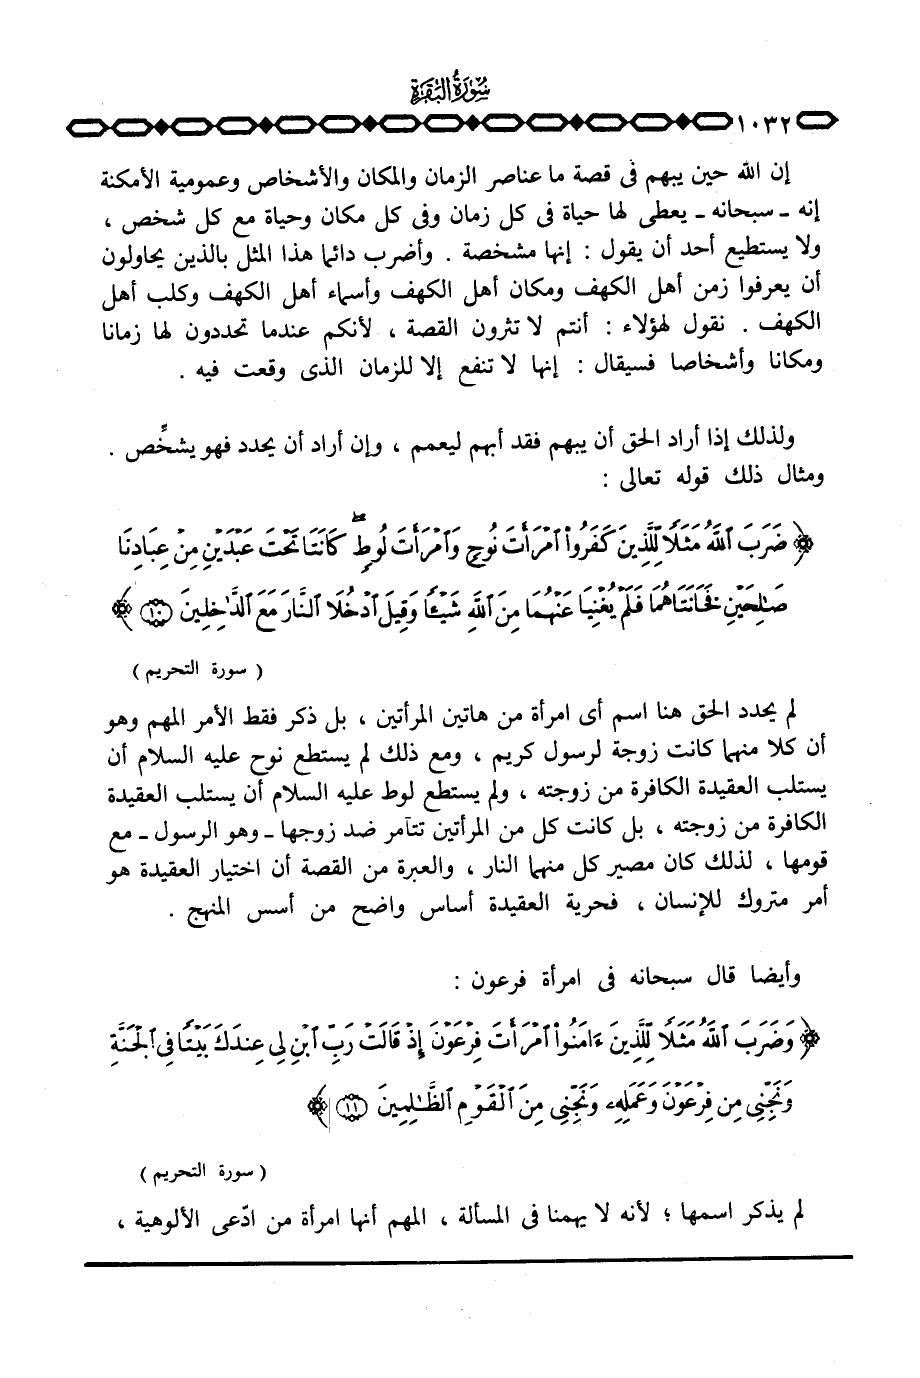 سُورَةُ البَقَرَةِ
١٠٣٢
إن الله حين يبهم فى قصة ما عناصر الزمان والمكان والأشخاص وعمومية الأمكنة
إنه ـ سبحانه ـ يعطى لها حياة فى كل زمان وفى كل مكان وحياة مع كل شخص ،
ولا يستطيع أحد أن يقول : إنها مشخصة . وأضرب دائما هذا المثل بالذين يحاولون
أن يعرفوا زمن أهل الكهف ومكان أهل الكهف وأسماء أهل الكهف وكلب أهل
الكهف . نقول لهؤلاء : أنتم لا تثرون القصة ، لأنكم عندما تحددون لها زمانا
ومكانا وأشخاصا فسيقال : إنها لا تنفع إلا للزمان الذى وقعت فيه .
ولذلك إذا أراد الحق أن يبهم فقد أبهم ليعمم ، وإن أراد أن يحدد فهو يشخِّص .
ومثال ذلك قوله تعالى :
﴿ ضَرَبَ ٱللَّهُ مَثَلًا لِّلَّذِينَ كَفَرُوا۟ ٱمْرَأَتَ نُوحٍ وَٱمْرَأَتَ لُوطٍ ۖ كَانَتَا تَحْتَ عَبْدَيْنِ مِنْ عِبَادِنَا
صَـٰلِحَيْنِ فَخَانَتَاهُمَا فَلَمْ يُغْنِيَا عَنْهُمَا مِنَ ٱللَّهِ شَيْـًٔا وَقِيلَ ٱدْخُلَا ٱلنَّارَ مَعَ ٱلدَّٰخِلِينَ ١٠ ﴾
( سورة التحريم )
لم يحدد الحق هنا اسم أى امرأة من هاتين المرأتين ، بل ذكر فقط الأمر المهم وهو
أن كلا منهما كانت زوجة لرسول كريم ، ومع ذلك لم يستطع نوح عليه السلام أن
يستلب العقيدة الكافرة من زوجته ، ولم يستطع لوط عليه السلام أن يستلب العقيدة
الكافرة من زوجته ، بل كانت كل من المرأتين تتآمر ضد زوجها ـ وهو الرسول ـ مع
قومها ، لذلك كان مصير كل منهما النار ، والعبرة من القصة أن اختيار العقيدة هو
أمر متروك للإنسان ، فحرية العقيدة أساس واضح من أسس المنهج .
وأيضا قال سبحانه فى امرأة فرعون :
﴿ وَضَرَبَ ٱللَّهُ مَثَلًا لِّلَّذِينَ ءَامَنُوا۟ ٱمْرَأَتَ فِرْعَوْنَ إِذْ قَالَتْ رَبِّ ٱبْنِ لِى عِندَكَ بَيْتًا فِى ٱلْجَنَّةِ
وَنَجِّنِى مِن فِرْعَوْنَ وَعَمَلِهِۦ وَنَجِّنِى مِنَ ٱلْقَوْمِ ٱلظَّـٰلِمِينَ ١١ ﴾
( سورة التحريم )
لم يذكر اسمها ؛ لأنه لا يهمنا فى المسألة ، المهم أنها امرأة من ادّعى الألوهية ،